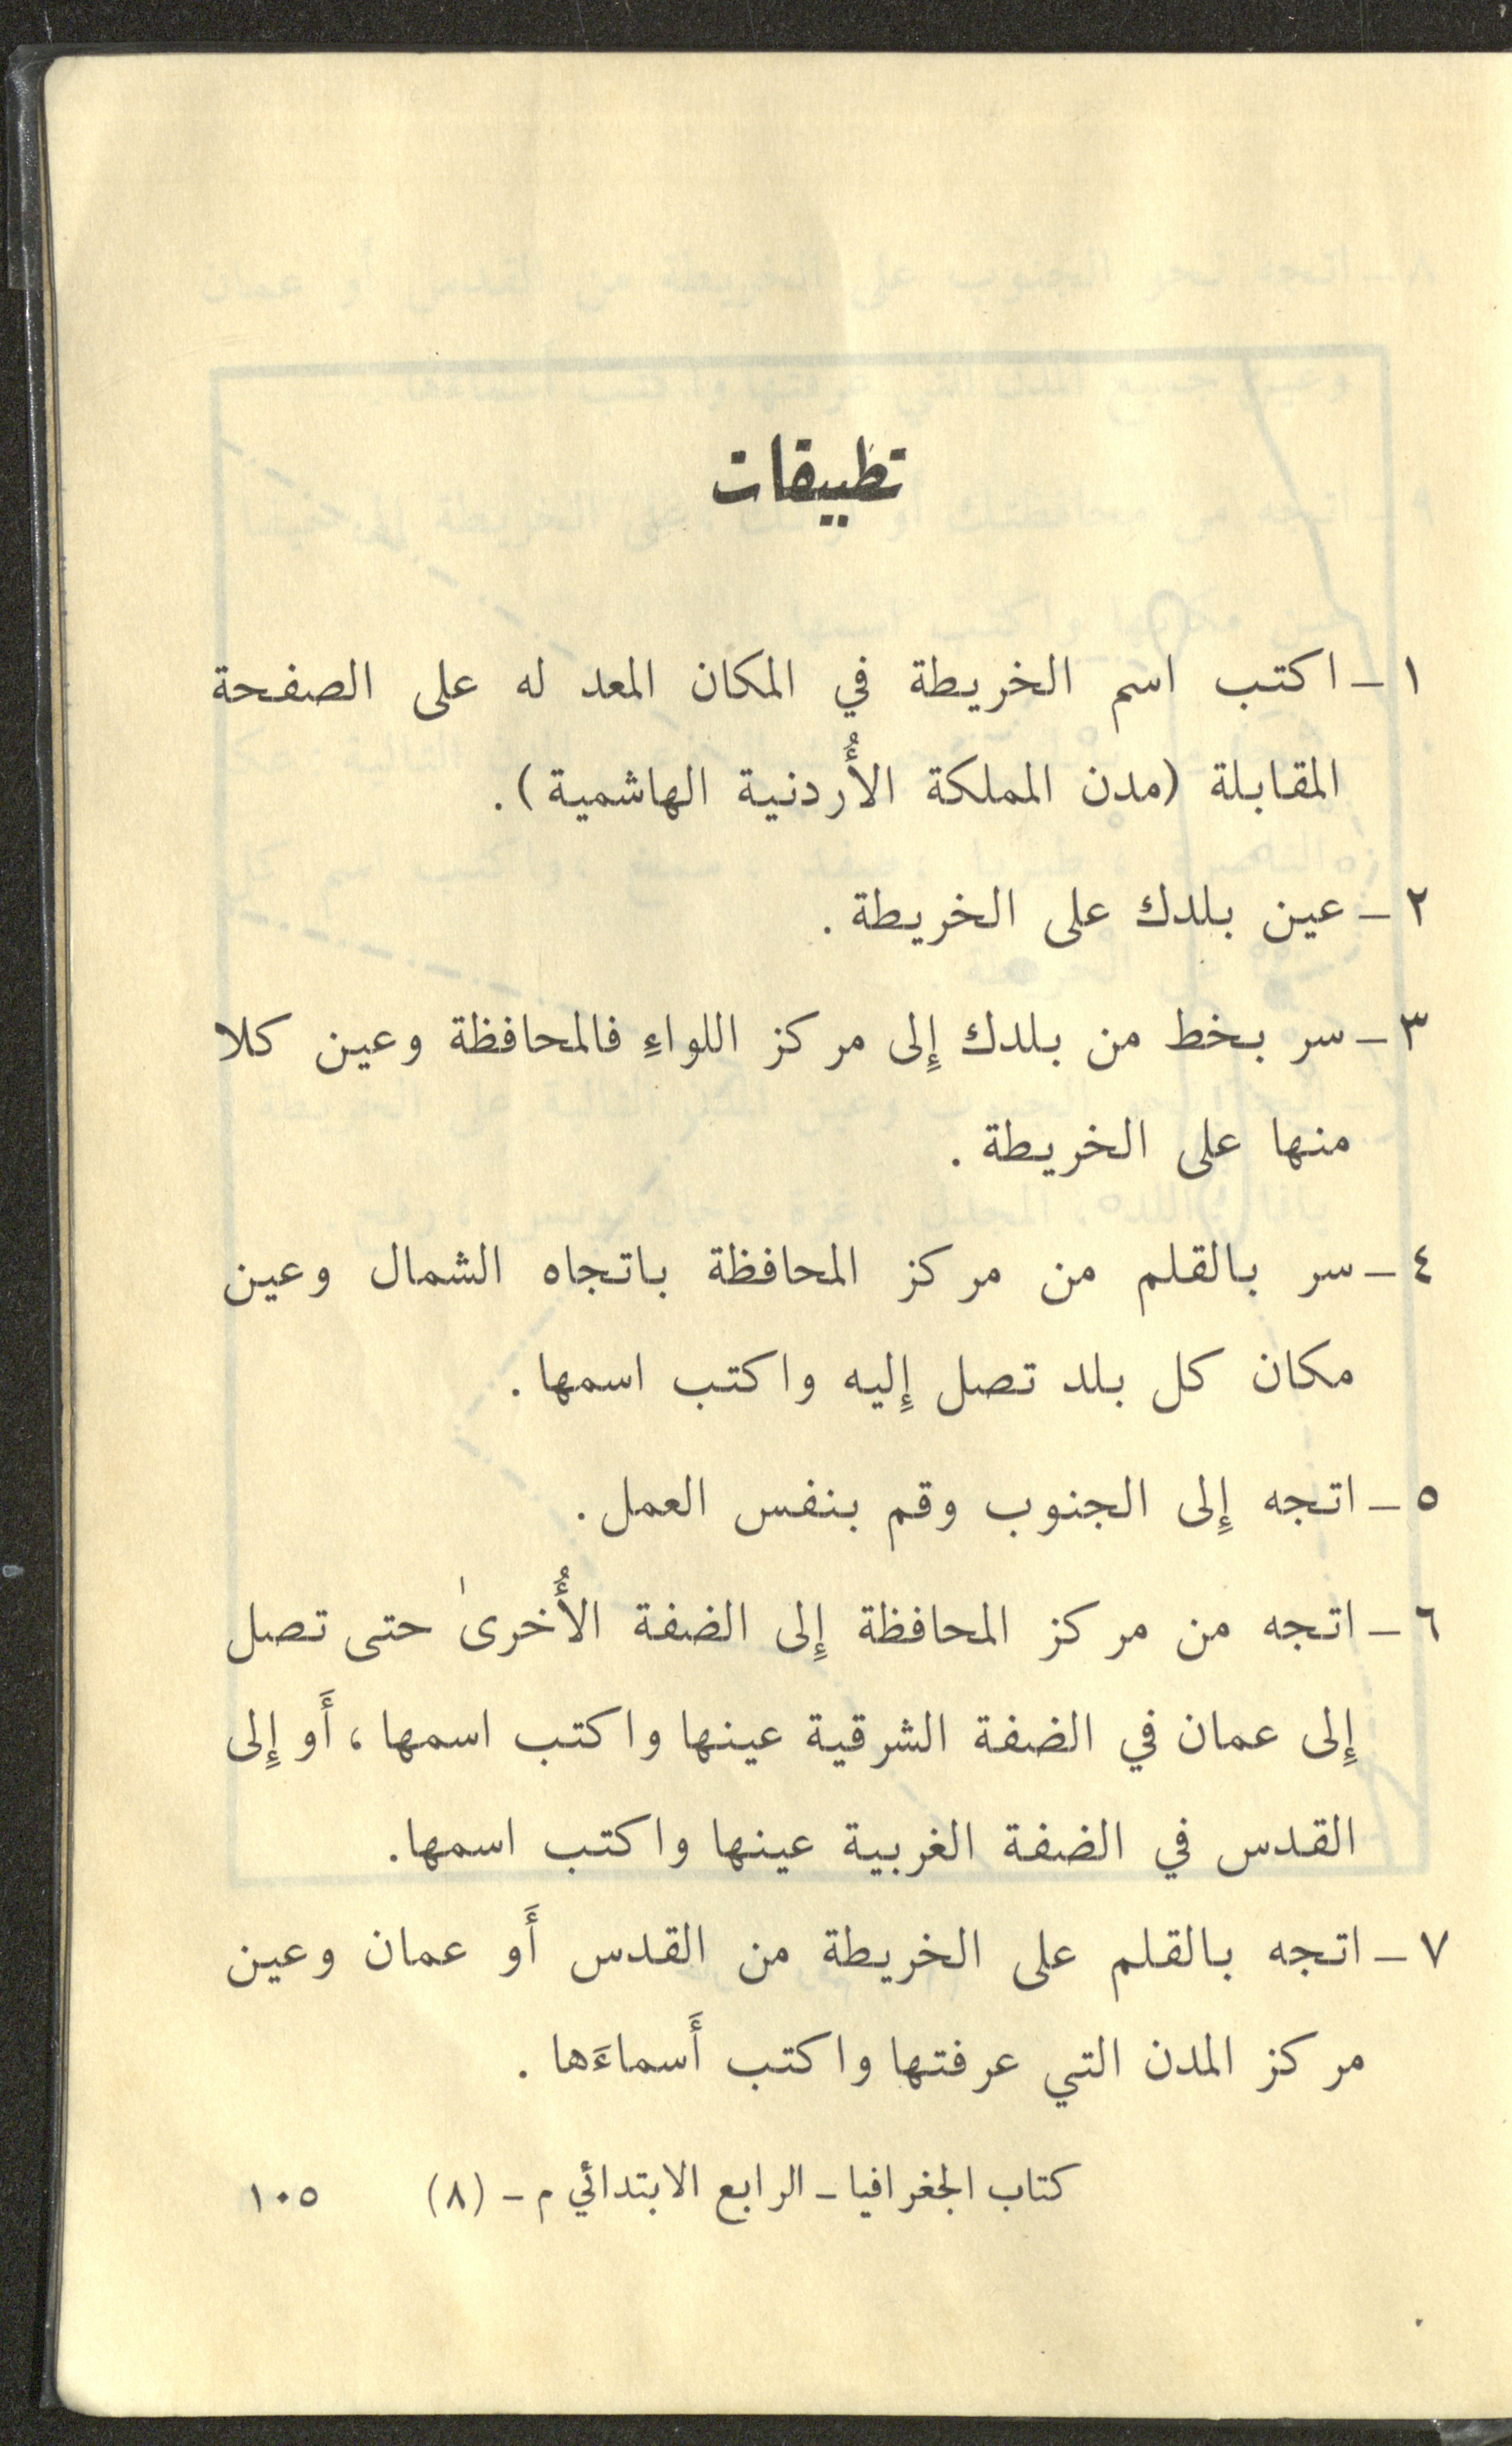 تطبيقات
١ - اكتب اسم الخريطة في المكان المعد له على الصفحة
المقابلة (مدن المملكة الأُردنية الهاشمية).
٢ - عين بلدك على الخريطة.
٣ - سر بخط من بلدك إِلى مركز اللواءِ فالمحافظة وعين كلا
منها على الخريطة.
٤ - سر بالقلم من مركز المحافظة باتجاه الشمال وعين
مكان كل بلد تصل إِليه واكتب اسمها.
٥ - اتجه إِلى الجنوب وقم بنفس العمل.
٦ - اتجه من مركز المحافظة إِلى الضفة الأُخرىٰ حتى تصل
إِلى عمان في الضفة الشرقية عينها واكتب اسمها، أَو إِلى
القدس في الضفة الغربية عينها واكتب اسمها.
٧ - اتجه بالقلم على الخريطة من القدس أَو عمان وعين
مركز المدن التي عرفتها واكتب أَسماءَها.
كتاب الجغرافيا - الرابع الابتدائي م - (٨) ١٠٥